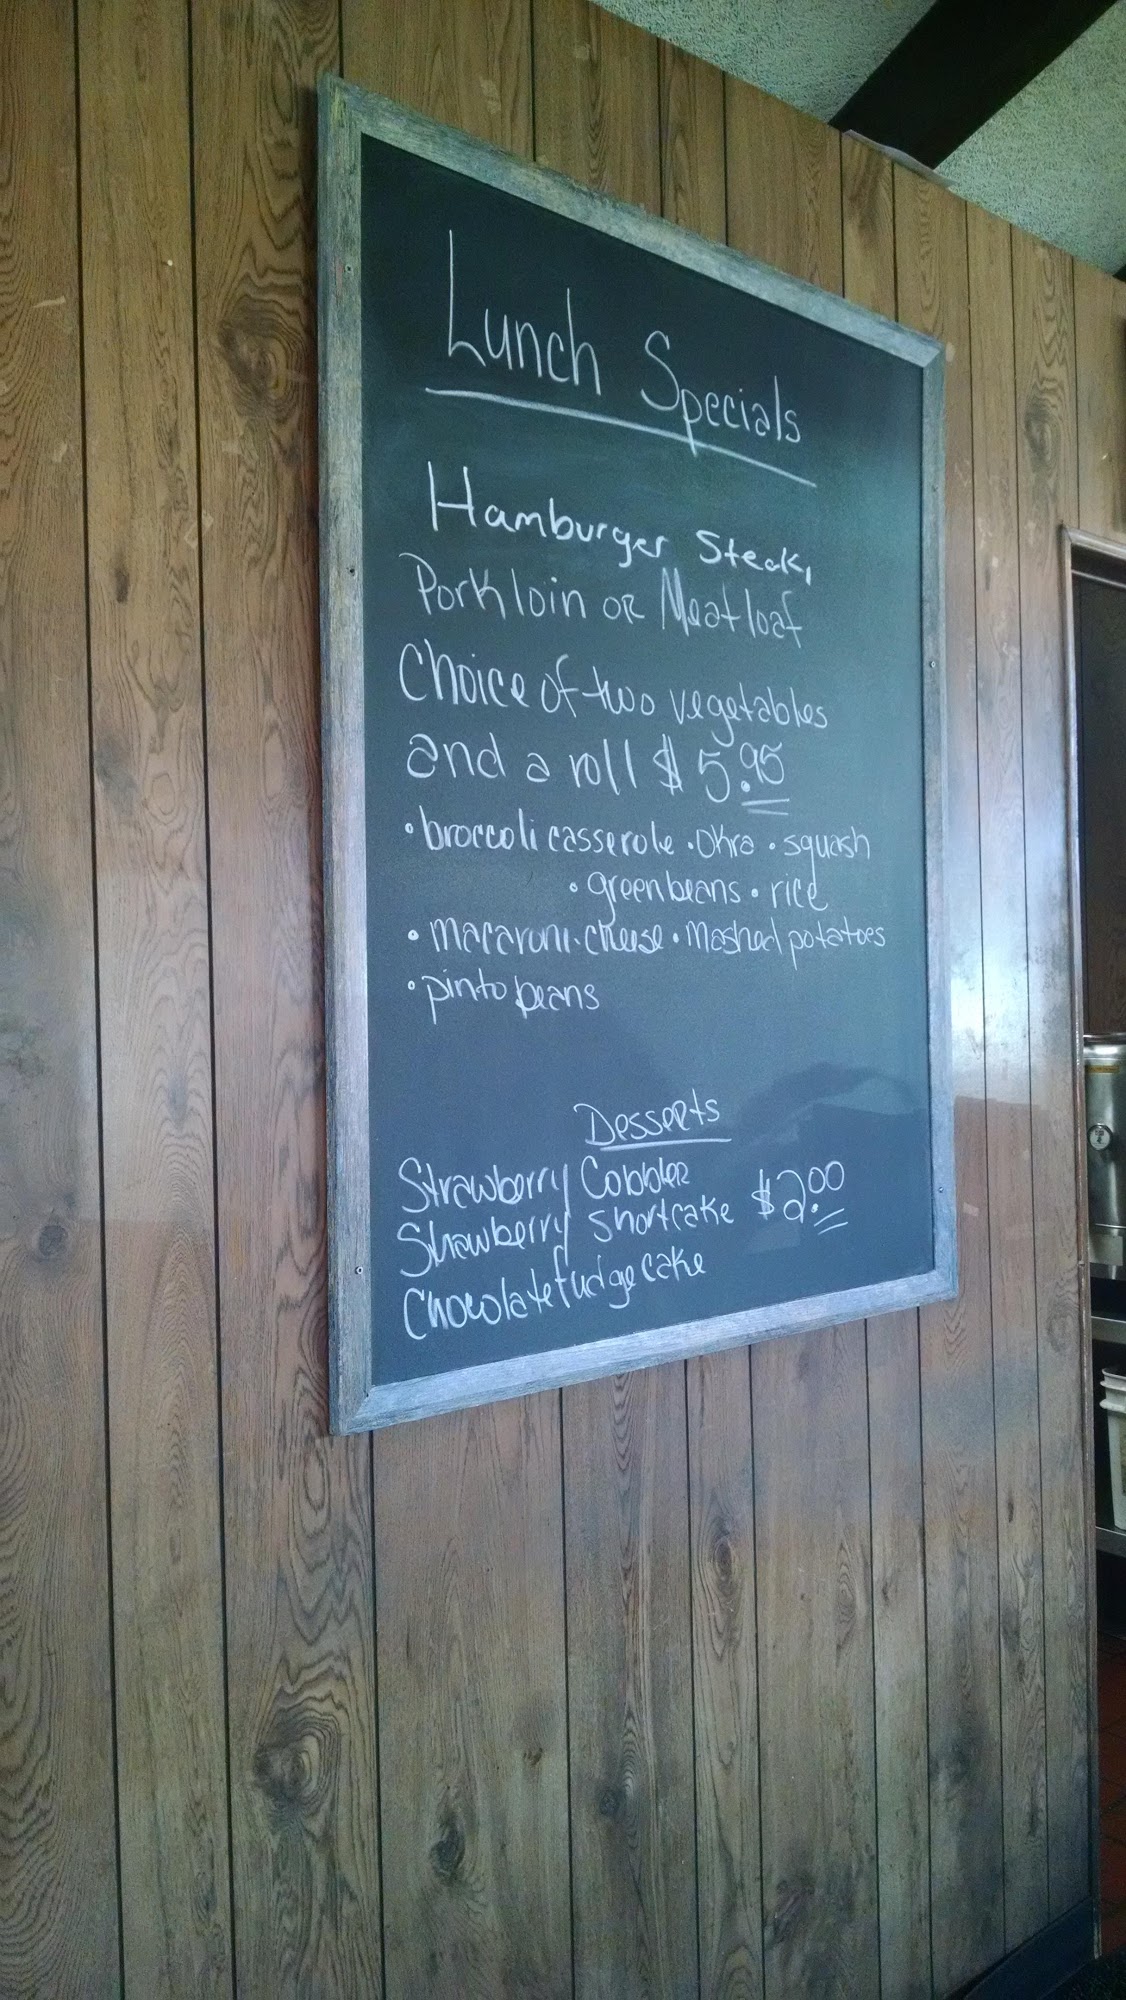 Lunch Specials
Hamburger Steak,
Pork loin or Meatloaf
Choice of two vegetables
and a roll $5.95
• broccoli casserole • okra • squash
• green beans • rice
• macaroni • cheese • Mashed potatoes
• pinto beans
Desserts
Strawberry Cobbler
Strawberry shortcake $2.00
Chocolate fudge cake